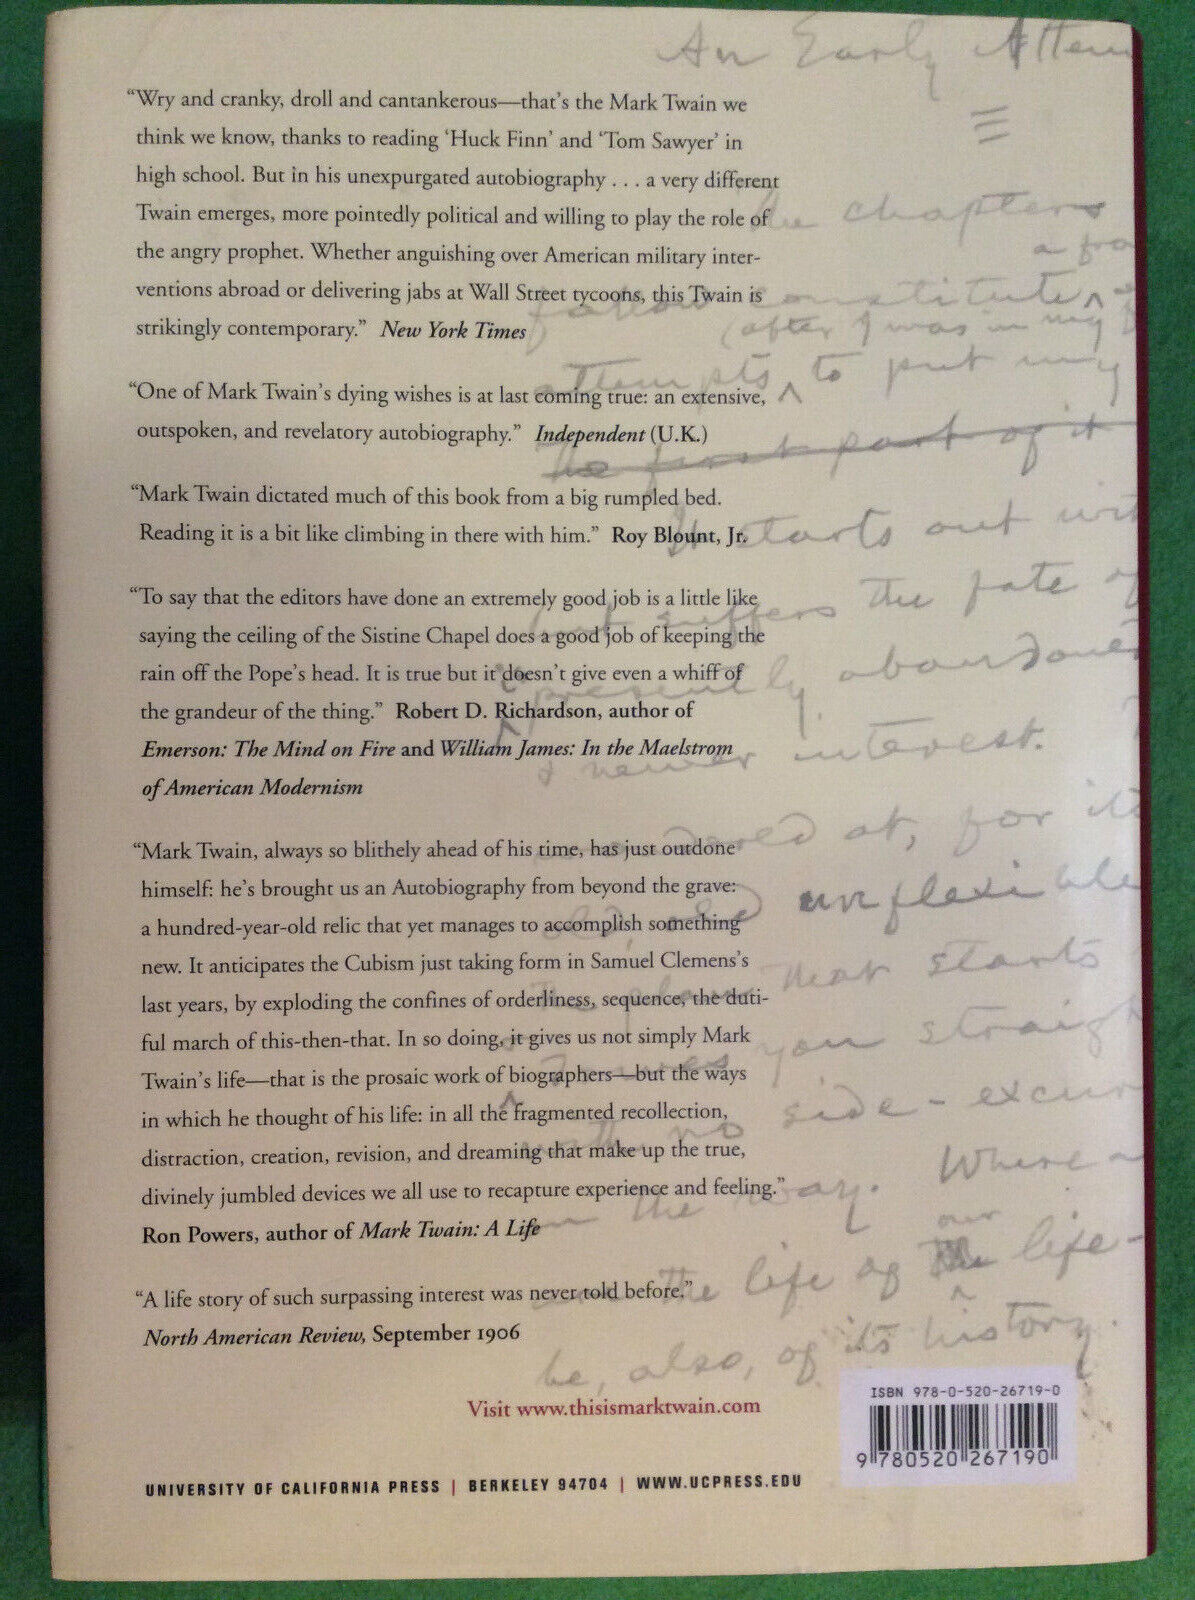 An Early Attem
“Wry and cranky, droll and cantankerous—that’s the Mark Twain we
think we know, thanks to reading ‘Huck Finn’ and ‘Tom Sawyer’ in
high school. But in his unexpurgated autobiography . . . a very different
Twain emerges, more pointedly political and willing to play the role of
the angry prophet. Whether anguishing over American military inter-
ventions abroad or delivering jabs at Wall Street tycoons, this Twain is
strikingly contemporary.” New York Times
“One of Mark Twain’s dying wishes is at last coming true: an extensive,
outspoken, and revelatory autobiography.” Independent (U.K.)
“Mark Twain dictated much of this book from a big rumpled bed.
Reading it is a bit like climbing in there with him.” Roy Blount, Jr.
“To say that the editors have done an extremely good job is a little like
saying the ceiling of the Sistine Chapel does a good job of keeping the
rain off the Pope’s head. It is true but it doesn’t give even a whiff of
the grandeur of the thing.” Robert D. Richardson, author of
Emerson: The Mind on Fire and William James: In the Maelstrom
of American Modernism
“Mark Twain, always so blithely ahead of his time, has just outdone
himself: he’s brought us an Autobiography from beyond the grave:
a hundred-year-old relic that yet manages to accomplish something
new. It anticipates the Cubism just taking form in Samuel Clemens’s
last years, by exploding the confines of orderliness, sequence, the duti-
ful march of this-then-that. In so doing, it gives us not simply Mark
Twain’s life—that is the prosaic work of biographers—but the ways
in which he thought of his life: in all the fragmented recollection,
distraction, creation, revision, and dreaming that make up the true,
divinely jumbled devices we all use to recapture experience and feeling.”
Ron Powers, author of Mark Twain: A Life
“A life story of such surpassing interest was never told before.”
North American Review, September 1906
the chapters
constitute
(after I was in my
attempts to put my
the first part of it
It starts out wit
suffers the fate
presently abandoned
newer interest.
at, for its
old, unflexible
that starts
you straigh
no side-excur
on the way. Where
the life of our life-
be, also, of its history.
Visit www.thisismarktwain.com
ISBN 978-0-520-26719-0
9 780520 267190
UNIVERSITY OF CALIFORNIA PRESS | BERKELEY 94704 | WWW.UCPRESS.EDU